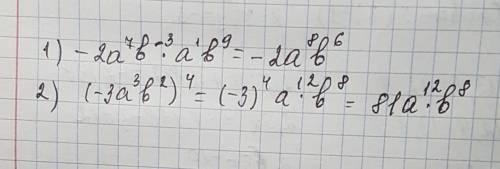 1) -2a⁷b⁻³·a¹b⁹ = -2a⁸b⁶
2) (-3a³b²)⁴ = (-3)⁴a¹²·b⁸ = 81a¹²·b⁸